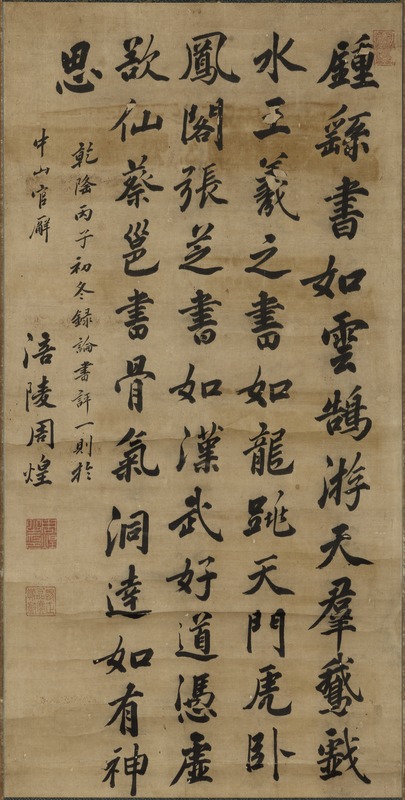 鍾繇書如雲鵠游天羣鵞戲
水王羲之書如龍跳天門虎卧
鳳閣張芝書如漢武好道憑虛
欲仙蔡邕書骨氣洞達如有神
思
乾隆丙子初冬録論書評一則於
中山官廨
涪陵周煌